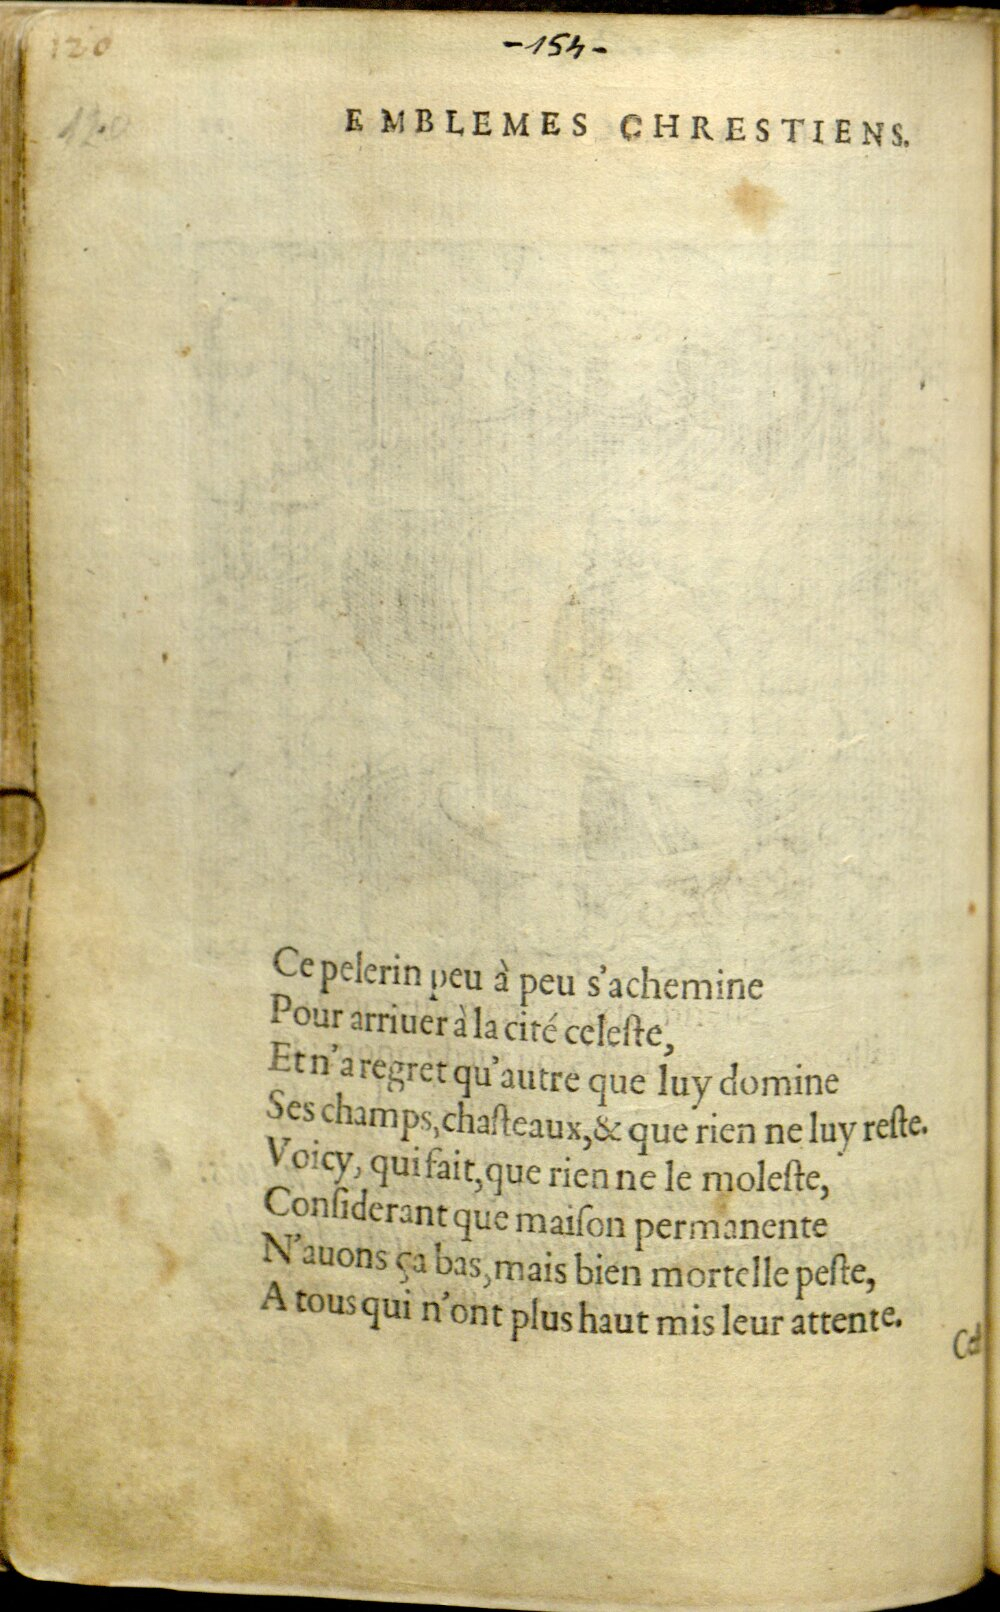 120
-154-
120
EMBLEMES CHRESTIENS.
Ce pelerin peu à peu s'achemine
Pour arriuer à la cité celeſte,
Et n'a regret qu'autre que luy domine
Ses champs, chaſteaux, & que rien ne luy reſte.
Voicy, qui fait, que rien ne le moleſte,
Conſiderant que maiſon permanente
N'auons ça bas, mais bien mortelle peſte,
A tous qui n'ont plus haut mis leur attente.